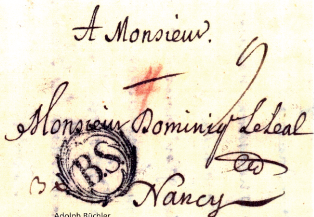 A Monsieur.
Monsieur Dominiq Leleal
B.S.
Nancy
Adolph Büchler